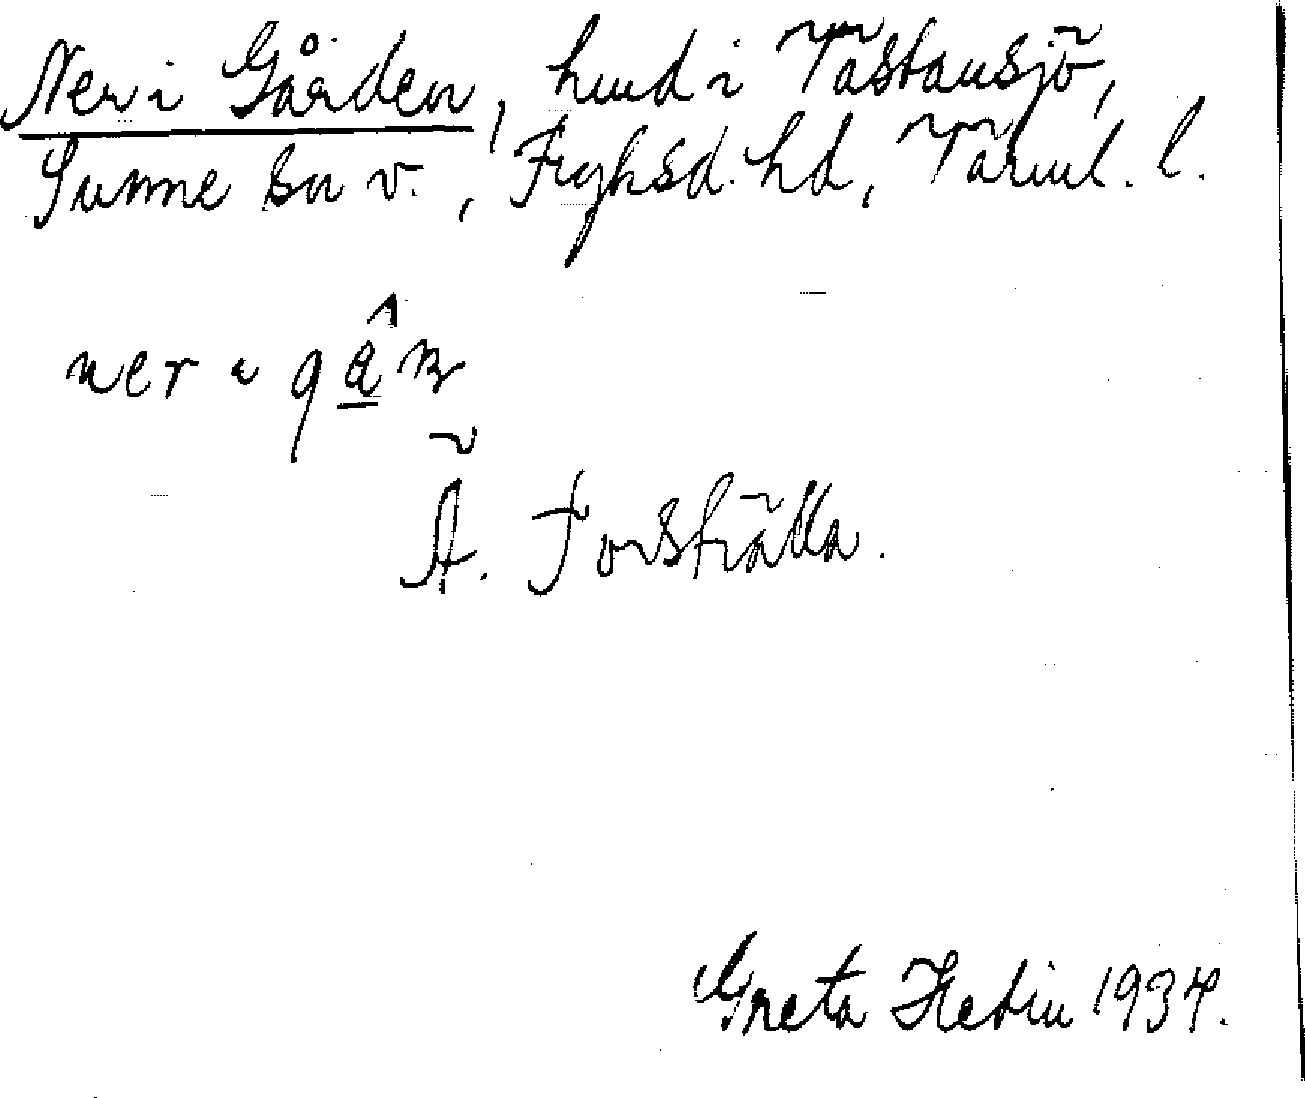 Ner i Gården, hmd i Västansjö,
Sunne sn v., Fryksd. hd, Värml. l.
Ä. Torsträlla.
Greta Hedin 1934.